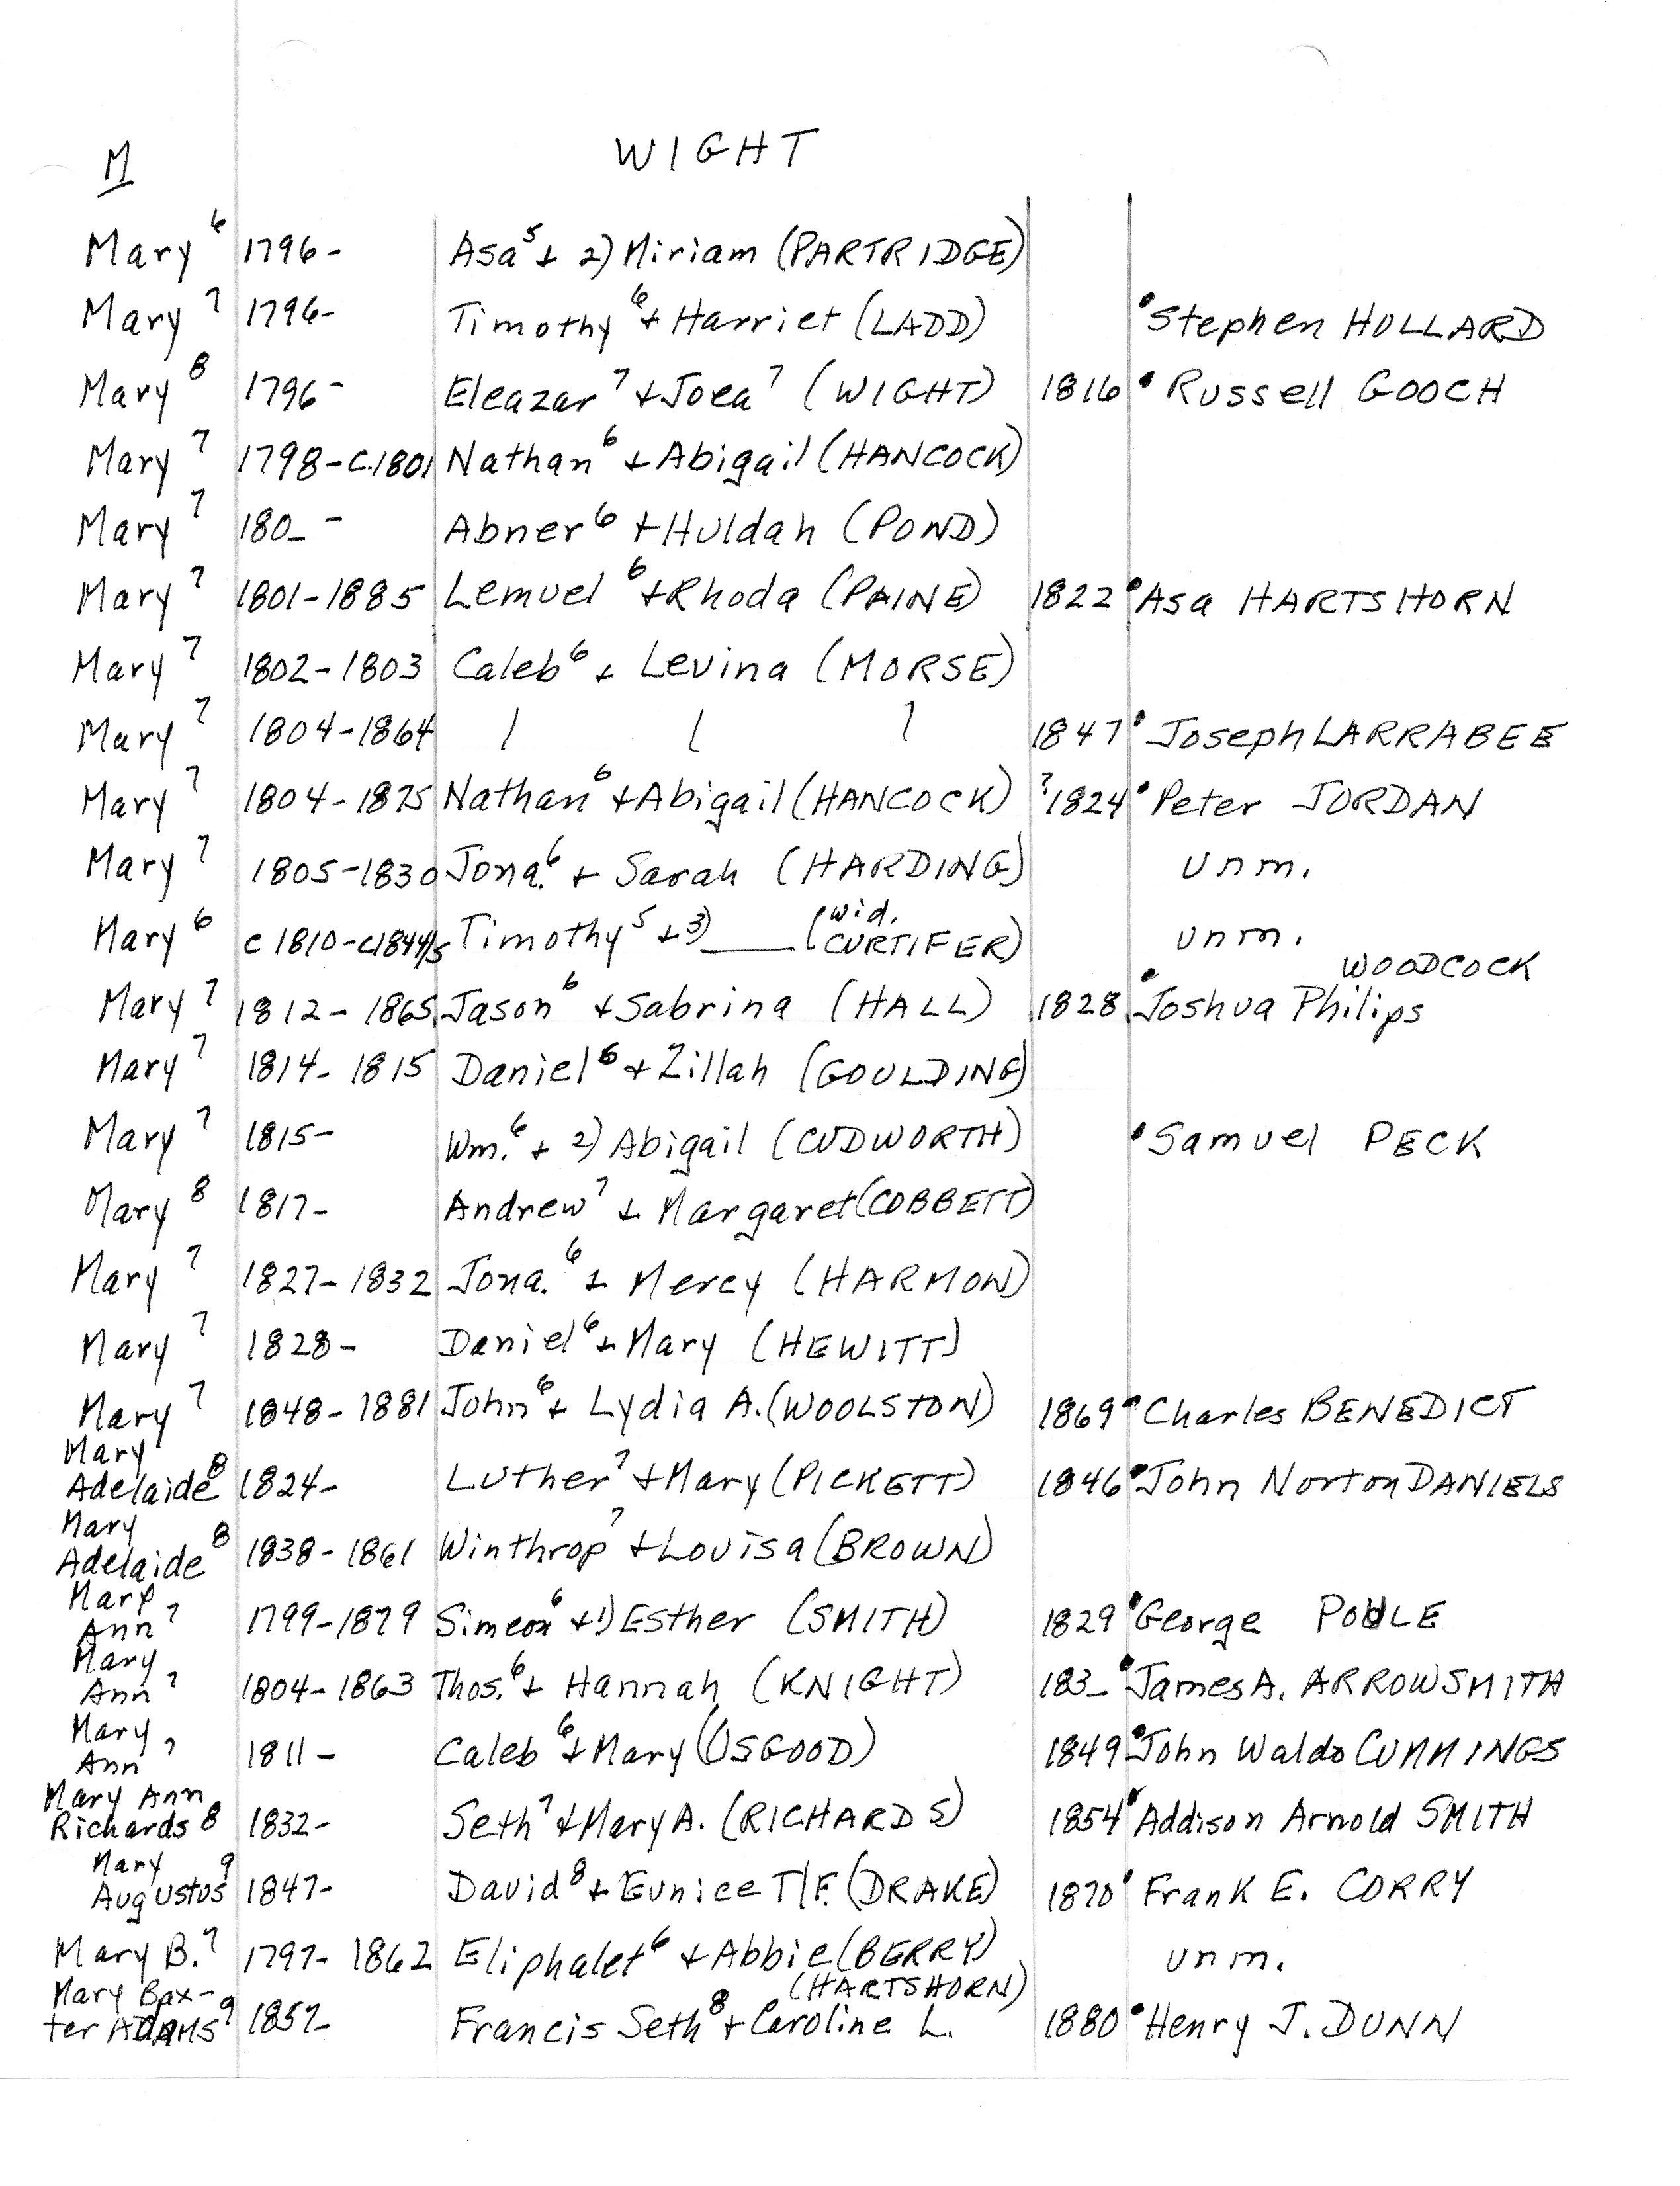 M WIGHT
Mary⁶ 1796- Asa⁵ + 2) Miriam (PARTRIDGE)
Mary⁷ 1796- Timothy⁶ + Harriet (LADD) •Stephen HOLLARD
Mary⁸ 1796- Eleazar⁷ + Joea⁷ (WIGHT) 1816 • Russell GOOCH
Mary⁷ 1798-C.1801 Nathan⁶ + Abigail (HANCOCK)
Mary⁷ 180_ - Abner⁶ + Huldah (POND)
Mary⁷ 1801-1885 Lemuel⁶ + Rhoda (PAINE) 1822 •Asa HARTSHORN
Mary⁷ 1802-1803 Caleb⁶ + Levina (MORSE)
Mary⁷ 1804-1864 | | | 1847 •Joseph LARRABEE
Mary⁷ 1804-1875 Nathan⁶ + Abigail (HANCOCK) ?1824 •Peter JORDAN
Mary⁷ 1805-1830 Jona.⁶ + Sarah (HARDING) unm.
Mary⁶ c1810-c1844/5 Timothy⁵ + 3) ____ (wid. CURTIFER) unm.
WOODCOCK
Mary⁷ 1812-1865 Jason⁶ + Sabrina (HALL) 1828 •Joshua Philips
Mary⁷ 1814-1815 Daniel⁶ + Zillah (GOULDING)
Mary⁷ 1815- Wm.⁶ + 2) Abigail (CUDWORTH) •Samuel PECK
Mary⁸ 1817- Andrew⁷ + Margaret (COBBETT)
Mary⁷ 1827-1832 Jona.⁶ + Mercy (HARMON)
Mary⁷ 1828- Daniel⁶ + Mary (HEWITT)
Mary⁷ 1848-1881 John⁶ + Lydia A. (WOOLSTON) 1869 •Charles BENEDICT
Mary
Adelaide⁸ 1824- Luther⁷ + Mary (PICKETT) 1846 •John Norton DANIELS
Mary
Adelaide⁸ 1838-1861 Winthrop⁷ + Louisa (BROWN)
Mary
Ann⁷ 1799-1879 Simeon⁶ + 1) Esther (SMITH) 1829 •George POOLE
Mary
Ann⁷ 1804-1863 Thos.⁶ + Hannah (KNIGHT) 183_ •James A. ARROWSMITH
Mary
Ann⁷ 1811- Caleb⁶ + Mary (OSGOOD) 1849 •John Waldo CUMMINGS
Mary Ann
Richards⁸ 1832- Seth⁷ + Mary A. (RICHARDS) 1854 •Addison Arnold SMITH
Mary
Augustus⁹ 1847- David⁸ + Eunice T/F. (DRAKE) 1870 • Frank E. CORRY
Mary B.⁷ 1797-1862 Eliphalet⁶ + Abbie (BERRY) unm.
Mary Bax- (HARTSHORN)
ter ADAMS⁹ 1857- Francis Seth⁸ + Caroline L. 1880 •Henry J. DUNN